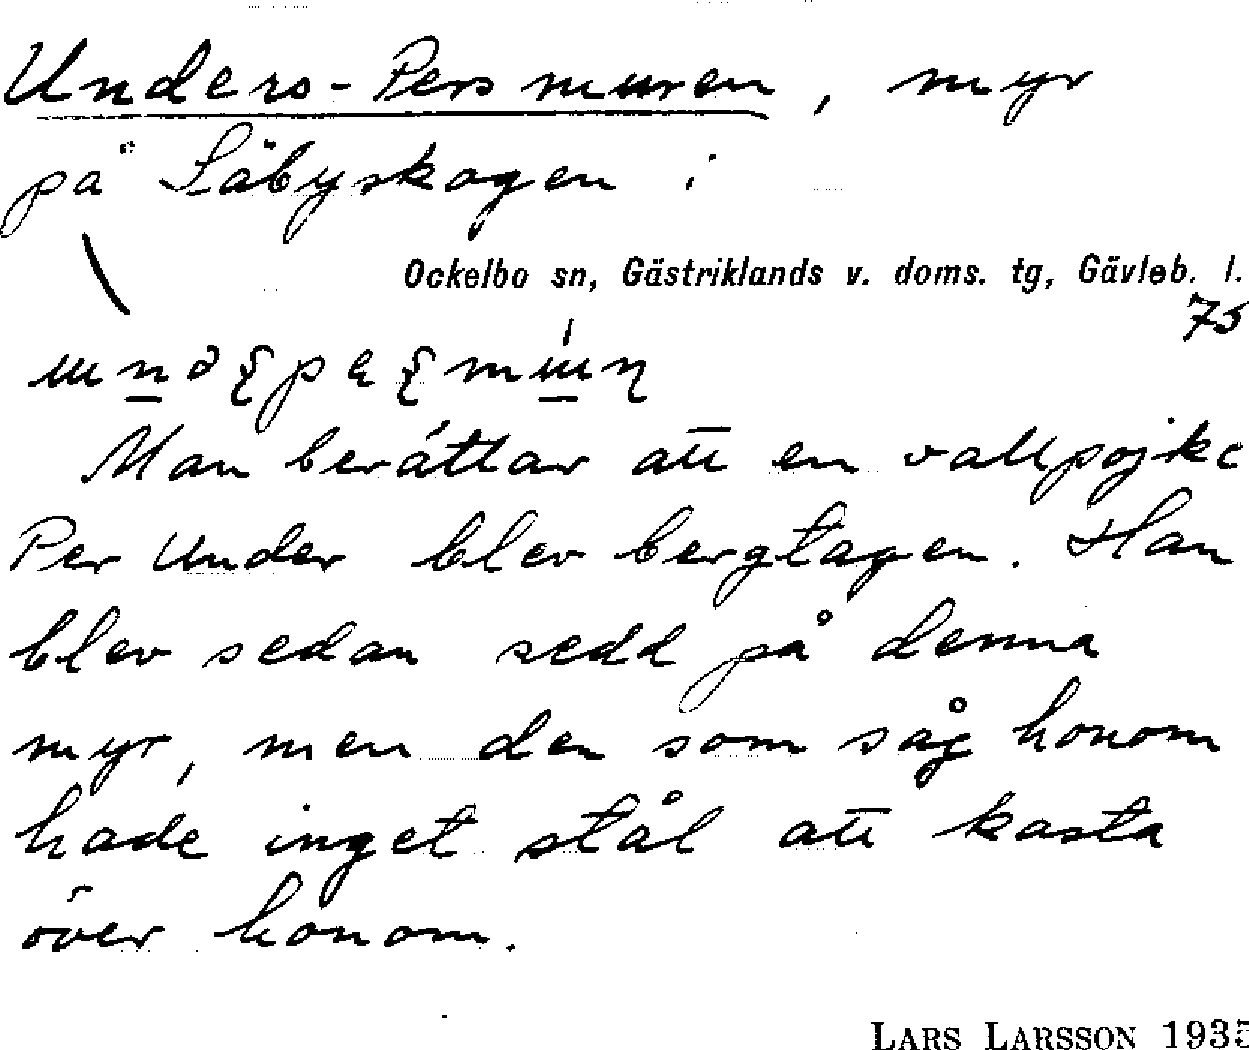 Unders-Persmuren, myr
på Säbyskogen i
Ockelbo sn, Gästriklands v. doms. tg, Gävleb. l.
75
Man berättar att en vallpojke
Per Under blev bergtagen. Han
blev sedan sedd på denna
myr, men den som såg honom
hade inget stål att kasta
över honom.
LARS LARSSON 1935